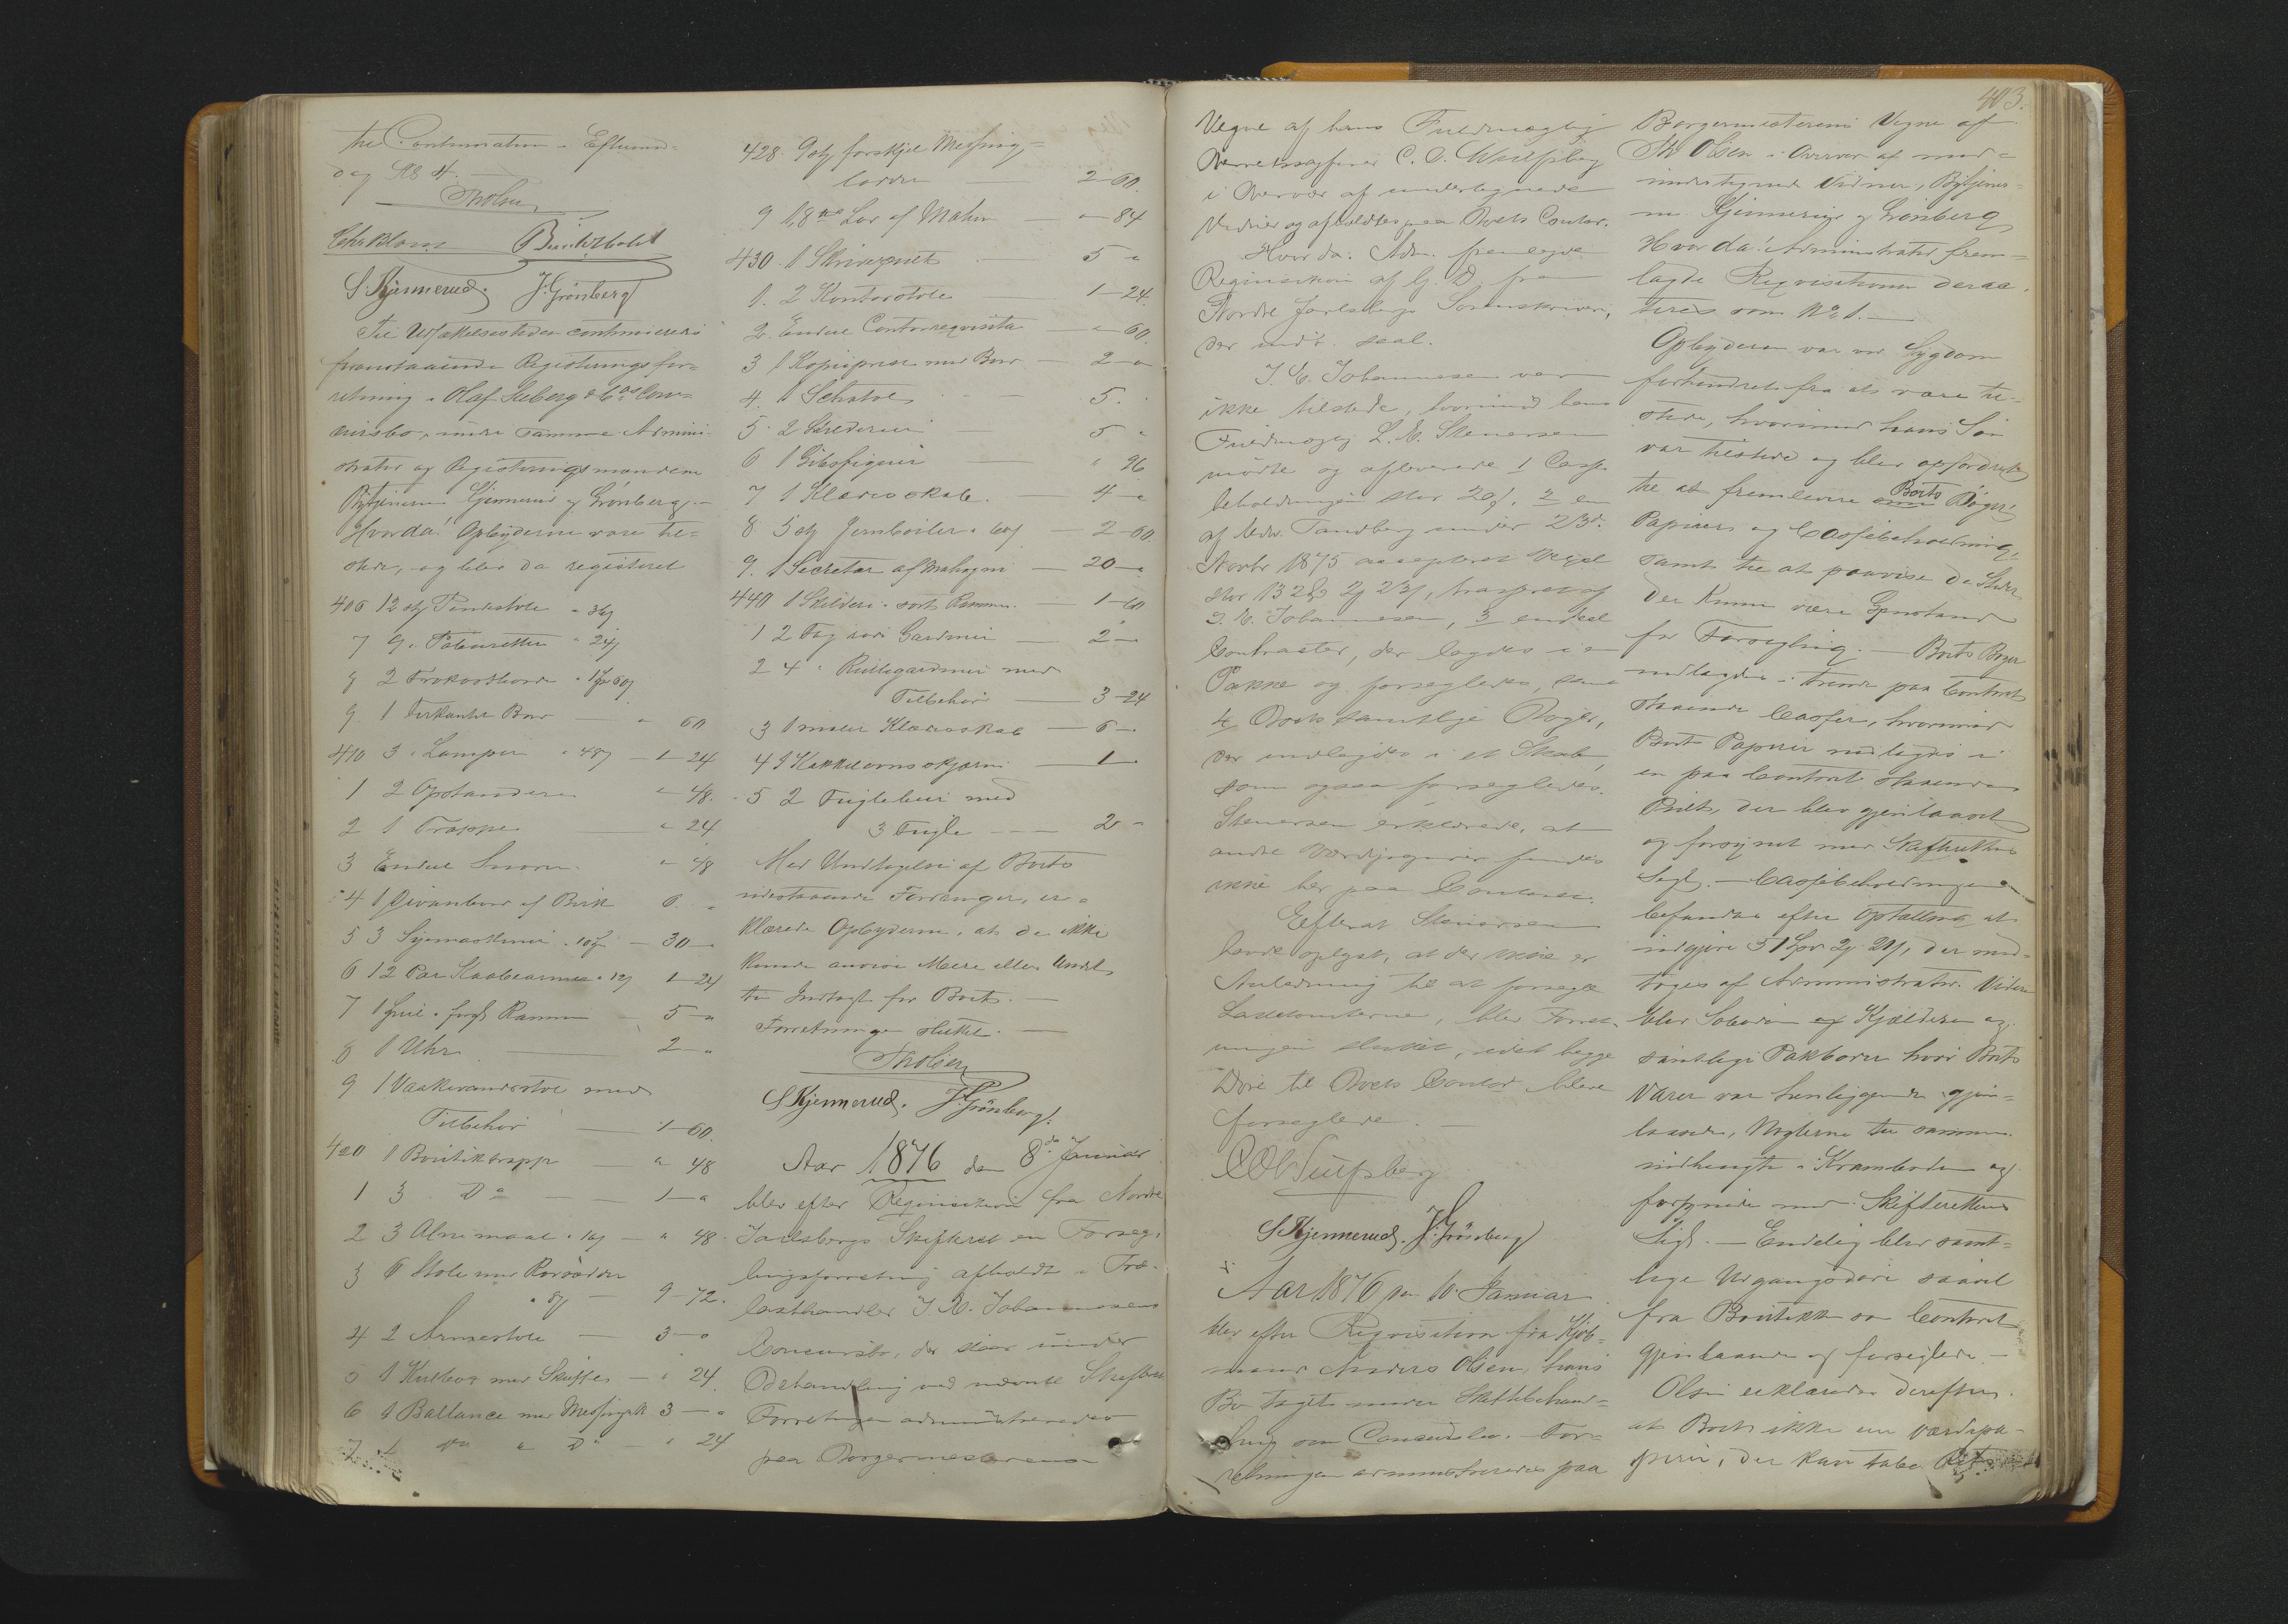 til Continuation i Eftermid-
dag Kl 4.
ThOlsen
Chr Blom
S. Kjennerud. J. Grönberg
Til Udsættelsestiden continueredes
foranstaaende Registreringsfor-
retning i Olaf & Cos Con-
cursbo, under samme Admini-
strator og Registreringsmændene
Bytjenerne Gjennerud & Grønberg.
Hvorda! Opbyderne vare til-
stede, og blev da registeret
406 12 stk Pindestole a 36
7 9 Tabouretter a 24
8 2
9 1 firkantet Bord " 60
410 3 Lamper a 48 1-24
1 2 Opstandere " 48.
2 1 Trappe " 24
3 Endeel " 48
4 1 Divanbord af Birk 6. "
5 3 Symaskiner a 10 30 "
6 12 Par a 12 1-24
7 1 Speil i forgt Ramme 5 "
8 1 Uhr 2 "
9 1 Vaskevandsstol med
Tilbehør 1-60.
420 1 Boutiktrappe " 48
1 3 Do 1 "
2 3 Alnemaal a 16 " 48
3 6 Stole med
9-72.
4 2 Armestole 3 "
5 1 med Skuffer " 24
6 1 Ballance med Messingsk 3 "
7 1 Do " Do " 24
428. 9 stk forskjel Messing-
lodder 2-60.
9 1 8 af Mahn " 84
430. 1 Skriverpult 5 "
1. 2 Kontorstole 1-24.
2. Endeel Contorrequisita " 60
3 1 Kopiepresse med Bord 2 "
4. 1 Schatol 5.
5. 2 Skilderier 5 "
6 1 Gibsfigurer " 96
7 1 Klædeskab. 4 "
8 5 stk 2-60.
9. 1 Secretær af Mahogni 20 "
440 1 Skilderi i sort Ramme 1-60
1 2 Fag Gardiner 2 "
2 4 " Rullegardiner med
Tilbehør 3-24
3 1 malet Klædeskab 6 "
4 1 Kakkelovnsskjærm 1
5 2 Fuglebuur med
3 Fugle 2 "
Med Undtagelse af Boets
udestaaende Fordringer, er-
klærede Opbyderne, at de ikke
kunde anvise Mere eller Andet
til Indtægt for Boet.
Forretningen sluttet.
ThOlsen
S Kjennerud. J. Grönberg.
Aar 1876 den 8de Januar
blev efter Reqvisition fra Nordre
Jarlsbergs Skifteret en Forseg-
lingsforretning afholdt i Træ-
lasthandler J. E. Johannesens
Concursbo, der staar under
Behandling ved nævnte Skifteret
Forretningen administreredes
paa Borgermesterens
403.
Vegne af hans Fuldmægtig
Overretssagfører C. O. Wulfsberg
i Overvær af undertegnede
Vidner og afholdtes paa Boets Contor.
Hvorda: Adm. fremlagde
Reqvisition af fra
Nordre Jarlsbergs Sorenskriveri,
der indt. skal.
J. E. Johannesen var
ikke tilstede, hvorimod hans
Fuldmægtig L. E. Stenersen
mødte og afleverede 1 Casse-
beholdningen stor 20, 2 en
af Tandberg under 23d.
Novbr 1875 accepteret Vexel
stor 132 2 23, trasseret af
J. E. Johannesen, 3 endeel
Contracter, der lagdes i en
Pakke og forsegledes, samt
4 Boets samtlige Bøger,
der indlagdes i et Skab,
som ogsaa forsegledes.
Stenersen erklærede, at
andre Værdipapirer fandtes
ikke her paa Contoret.
Efterat Stenersen
havde oplyst, at der ikke er
Anledning til at forsegle
Lasttomterne, blev Forret-
ningen sluttet, idet begge
Døre til Boets Contor bleve
forseglede.
C O Wulfsberg
S Kjennerud. J. Grönberg
Aar 1876 den 10 Januar
blev efter Reqvisition fra Kjøb-
mand Anders Olsen, hans
Bo taget under Skiftebehand-
ling som Concursbo. For-
retningen administreredes paa
Borgermesterens Vegne af
Th Olsen i Overvær af med-
undertegnede Vidner, Bytjener-
ne Gjennerud & Grönberg
Hvorda! Administrator frem-
lagde Reqvisitionen der
teres som No 1.
Opbyderen var ved Sygdom
forhindret fra at være til-
stede, hvorimod hans Søn
var tilstede og blev opfordret
til at fremlevere Boets Bøger,
Papirer og Cassebeholdning,
samt til at paavise de Steder
der kunne være Gjenstand
for Forsegling. Boets Bøger
nedlagdes i trende paa Contoret
staaende Casser, hvorimod
Boets Papirer nedlagdes i
en paa Contoret staaende
Pult, der blev gjenlaaset
og forsynet med Skifterettens
Segl. Cassebeholdningen
befandtes efter Optælling at
udgjøre 51 Spd 2 21, der mod-
toges af Administrator. Videre
blev Søboden og Kjælderen og
samtlige Pakboder hvori Boets
Varer var henliggende gjen-
laasede, Nøglerne til samme
indhængte i Kramboden og
forsynede med Skifterettens
Segl. Endelig blev samt-
lige Udgangsdøre saavel
fra Boutikken som Contoret
gjenlaasede og forseglede.
Olsen erklærede derefter
at Boet ikke eier Værdipa-
pirer, der kan tabe Ret